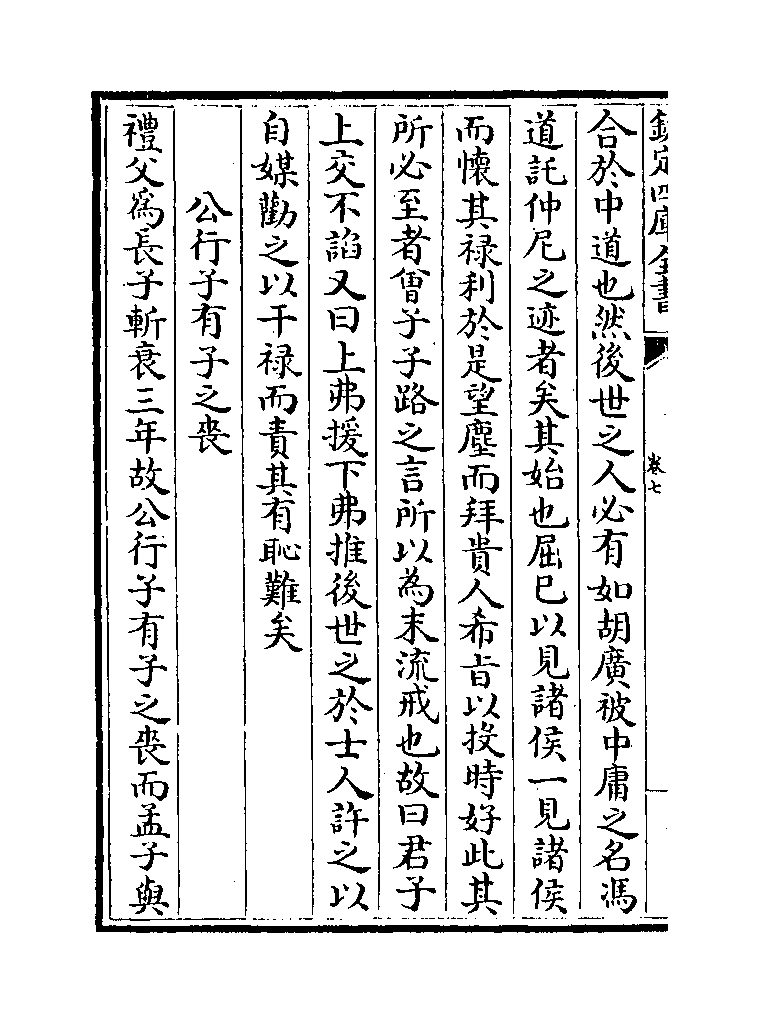 欽定四庫全書
卷七
合於中道也然後世之人必有如胡廣被中庸之名馮
道託仲尼之迹者矣其始也屈已以見諸侯一見諸侯
而懷其祿利於是望塵而拜貴人希旨以投時好此其
所必至者曾子子路之言所以為末流戒也故曰君子
上交不諂又曰上弗援下弗推後世之於士人許之以
自媒勸之以干祿而責其有恥難矣
公行子有子之喪
禮父為長子斬衰三年故公行子有子之喪而孟子與